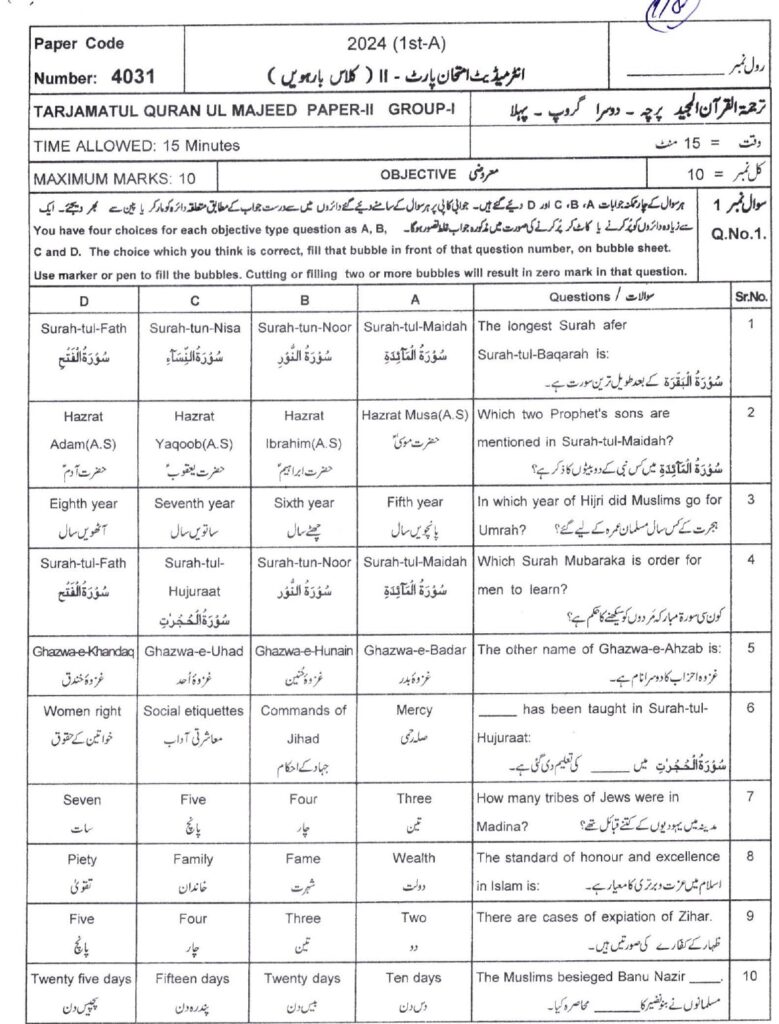 Paper Code
Number: 4031
2024 (1st-A)
انٹرمیڈیٹ امتحان پارٹ - II ( کلاس بارھویں )
رول نمبر
TARJAMATUL QURAN UL MAJEED PAPER-II GROUP-I
ترجمۃ القرآن المجید پرچہ - دوسرا گروپ - پہلا
TIME ALLOWED: 15 Minutes
وقت = 15 منٹ
MAXIMUM MARKS: 10
OBJECTIVE معروضی
کل نمبر = 10
ہر سوال کے چار ممکنہ جوابات A، B، C اور D دیئے گئے ہیں۔ جوابی کاپی پر ہر سوال کے سامنے دیئے گئے دائروں میں سے درست جواب کے مطابق متعلقہ دائرہ کو مارکر یا پین سے بھر دیجئے۔ ایک
سے زیادہ دائروں کو پُر کرنے یا کاٹ کر پُر کرنے کی صورت میں مذکورہ جواب غلط تصور ہوگا۔
سوال نمبر 1
Q.No.1.
You have four choices for each objective type question as A, B,
C and D. The choice which you think is correct, fill that bubble in front of that question number, on bubble sheet.
Use marker or pen to fill the bubbles. Cutting or filling two or more bubbles will result in zero mark in that question.
D C B A Questions / سوالات Sr.No.
Surah-tul-Fath Surah-tun-Nisa Surah-tun-Noor Surah-tul-Maidah The longest Surah afer 1
سُوْرَةُ الْفَتْحِ سُوْرَةُ النِّسَآءِ سُوْرَةُ النُّوْرِ سُوْرَةُ الْمَآئِدَةِ Surah-tul-Baqarah is:
سُوْرَةُ الْبَقَرَة کے بعد طویل ترین سورت ہے۔
Hazrat Hazrat Hazrat Hazrat Musa(A.S) Which two Prophet's sons are 2
Adam(A.S) Yaqoob(A.S) Ibrahim(A.S) حضرت موسیٰؑ mentioned in Surah-tul-Maidah?
حضرت آدمؑ حضرت یعقوبؑ حضرت ابراہیمؑ سُوْرَةُ الْمَآئِدَةِ میں کس نبی کے دو بیٹوں کا ذکر ہے؟
Eighth year Seventh year Sixth year Fifth year In which year of Hijri did Muslims go for 3
آٹھویں سال ساتویں سال چھٹے سال پانچویں سال Umrah? ہجرت کے کس سال مسلمان عمرہ کے لیے گئے؟
Surah-tul-Fath Surah-tul- Surah-tun-Noor Surah-tul-Maidah Which Surah Mubaraka is order for 4
سُوْرَةُ الْفَتْحِ Hujuraat سُوْرَةُ النُّوْرِ سُوْرَةُ الْمَآئِدَةِ men to learn?
سُوْرَةُ الْحُجُرٰتِ کون سی سورۃ مبارکہ مَردوں کو سیکھنے کا حکم ہے؟
Ghazwa-e-Khandaq Ghazwa-e-Uhad Ghazwa-e-Hunain Ghazwa-e-Badar The other name of Ghazwa-e-Ahzab is: 5
غزوۂ خندق غزوۂ اُحد غزوۂ حُنین غزوۂ بدر غزوہ احزاب کا دوسرا نام ہے۔
Women right Social etiquettes Commands of Mercy _____ has been taught in Surah-tul- 6
خواتین کے حقوق معاشرتی آداب Jihad صلہ رحمی Hujuraat:
جہاد کے احکام سُوْرَةُ الْحُجُرٰتِ میں _____ کی تعلیم دی گئی ہے۔
Seven Five Four Three How many tribes of Jews were in 7
سات پانچ چار تین Madina? مدینہ میں یہودیوں کے کتنے قبائل تھے؟
Piety Family Fame Wealth The standard of honour and excellence 8
تقویٰ خاندان شہرت دولت in Islam is: اسلام میں عزت و برتری کا معیار ہے۔
Five Four Three Two There are cases of expiation of Zihar. 9
پانچ چار تین دو ظہار کے کفارے کی صورتیں ہیں۔
Twenty five days Fifteen days Twenty days Ten days The Muslims besieged Banu Nazir ____. 10
پچیس دن پندرہ دن بیس دن دس دن مسلمانوں نے بنو نضیر کا _____ محاصرہ کیا۔